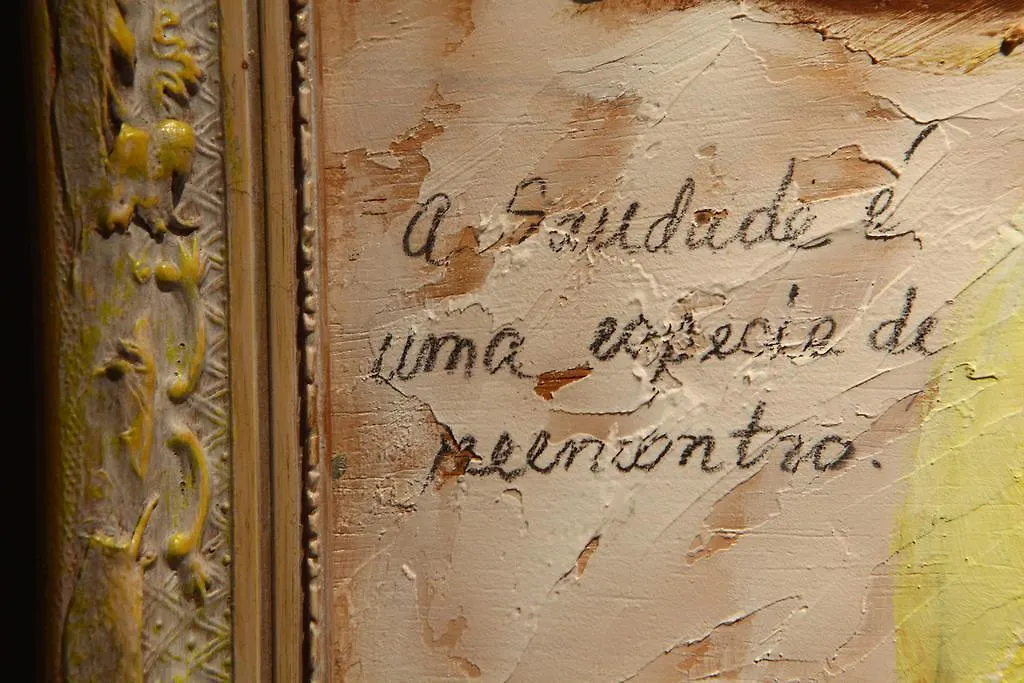 A Saudade é
uma especie de
reencontro.